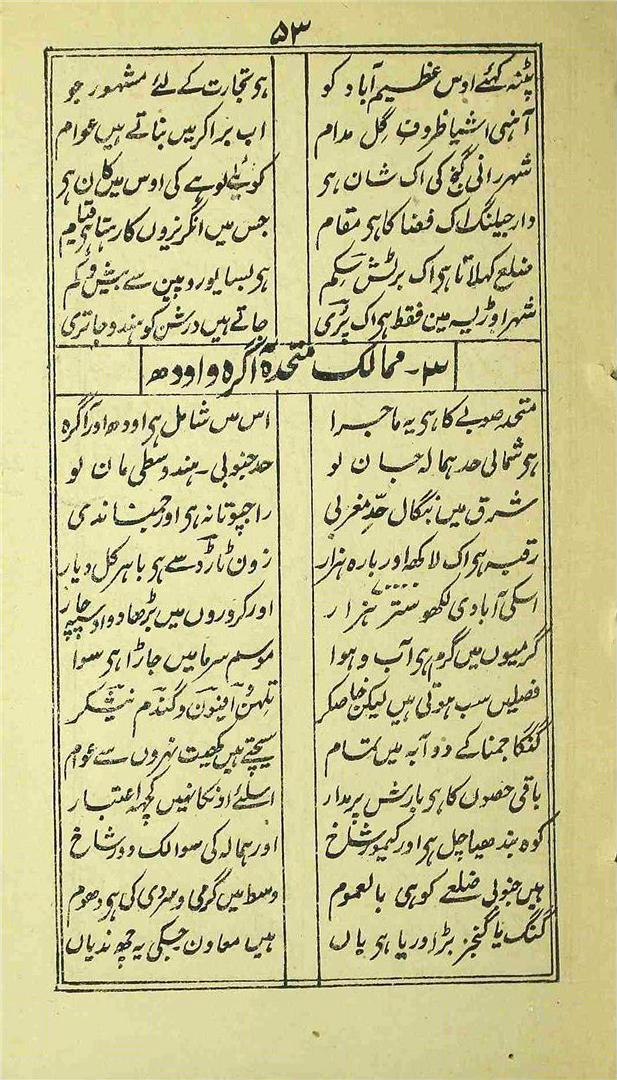 ۵۳
پٹنہ کہئے اوس عظیم آباد کو ہی تجارت کے لئے مشہور جو
آہنی اشیا ظروفِ گل مدام اب براکر میں بناتے ہیں عوام
شہر رانی گنج کی اک شان ہی کوئلے لوہے کی اوس میں کان ہی
دارجیلنگ اک فضا کا ہی مقام جس میں انگریزوں کا رہتا ہی قیام
ضلع کہلاتا ہی اک برٹش سکم ہی بسا یوروپین سے بیش و کم
شہر اوڑیسہ مین فقط ہی اک پُری جاتے ہیں درشن کو ہندو جاتری
۳۔ ممالک متحدہ آگرہ و اودھ
متحدہ صوبے کا ہی یہ ماجرا اس میں شامل ہی اودھ اور آگرہ
ہی شمالی حد ہمالہ جان لو حد جنوبی۔ ہند وسطی مان لو
شرق میں بنگال حدِّ مغربی راجپوتانہ ہی اور جمنا ندی
رقبہ ہی اک لاکھ اور بارہ ہزار زون ٹارڈ سے ہی باہر کل دیار
اسکی آبادی لکھو ستر ہزار اور کروروں میں بڑھا دو اوسپہ چار
گرمیوں میں گرم ہی آب و ہوا موسم سرما میں جاڑا ہی سوا
فصلیں سب ہوتی ہیں لیکن خاصکر تلہن افیون و گندم نیشکر
گنگا جمنا کے دو آبہ میں تمام سیچتے ہیں کھیت نہروں سے عوام
باقی حصوں کا ہی بارش پر مدار اسلئے اونکا نہیں کچھ اعتبار
کوہ بندھیاچل ہی اور کیمور شاخ اور ہمالہ کی سوالک دور شاخ
ہیں جنوبی ضلعے کوہی بالعموم وسط میں گرمی و سردی کی ہی دھوم
گنگ یا گنجز بڑا دریا ہی یاں ہیں معاون جسکی یہ چھ ندیاں